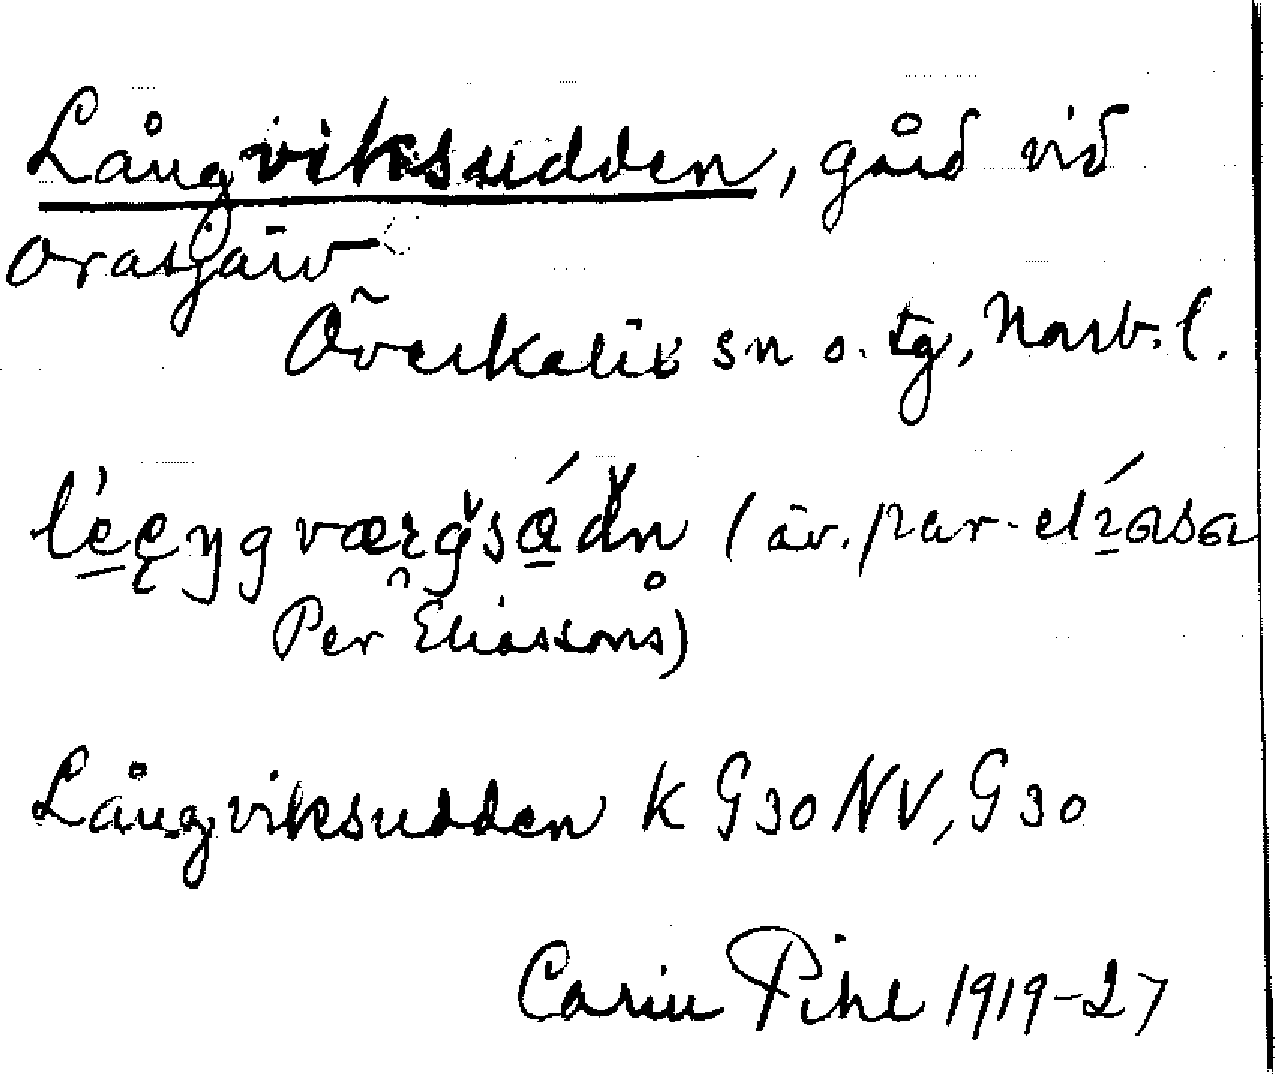 Långviksudden, gård vid
Orasjärv
Överkalix sn o. tg, Norrb. l.
(äv.
Per Eliassons)
Långviksudden K G30 NV, G30
Carin Pihl 1919-27